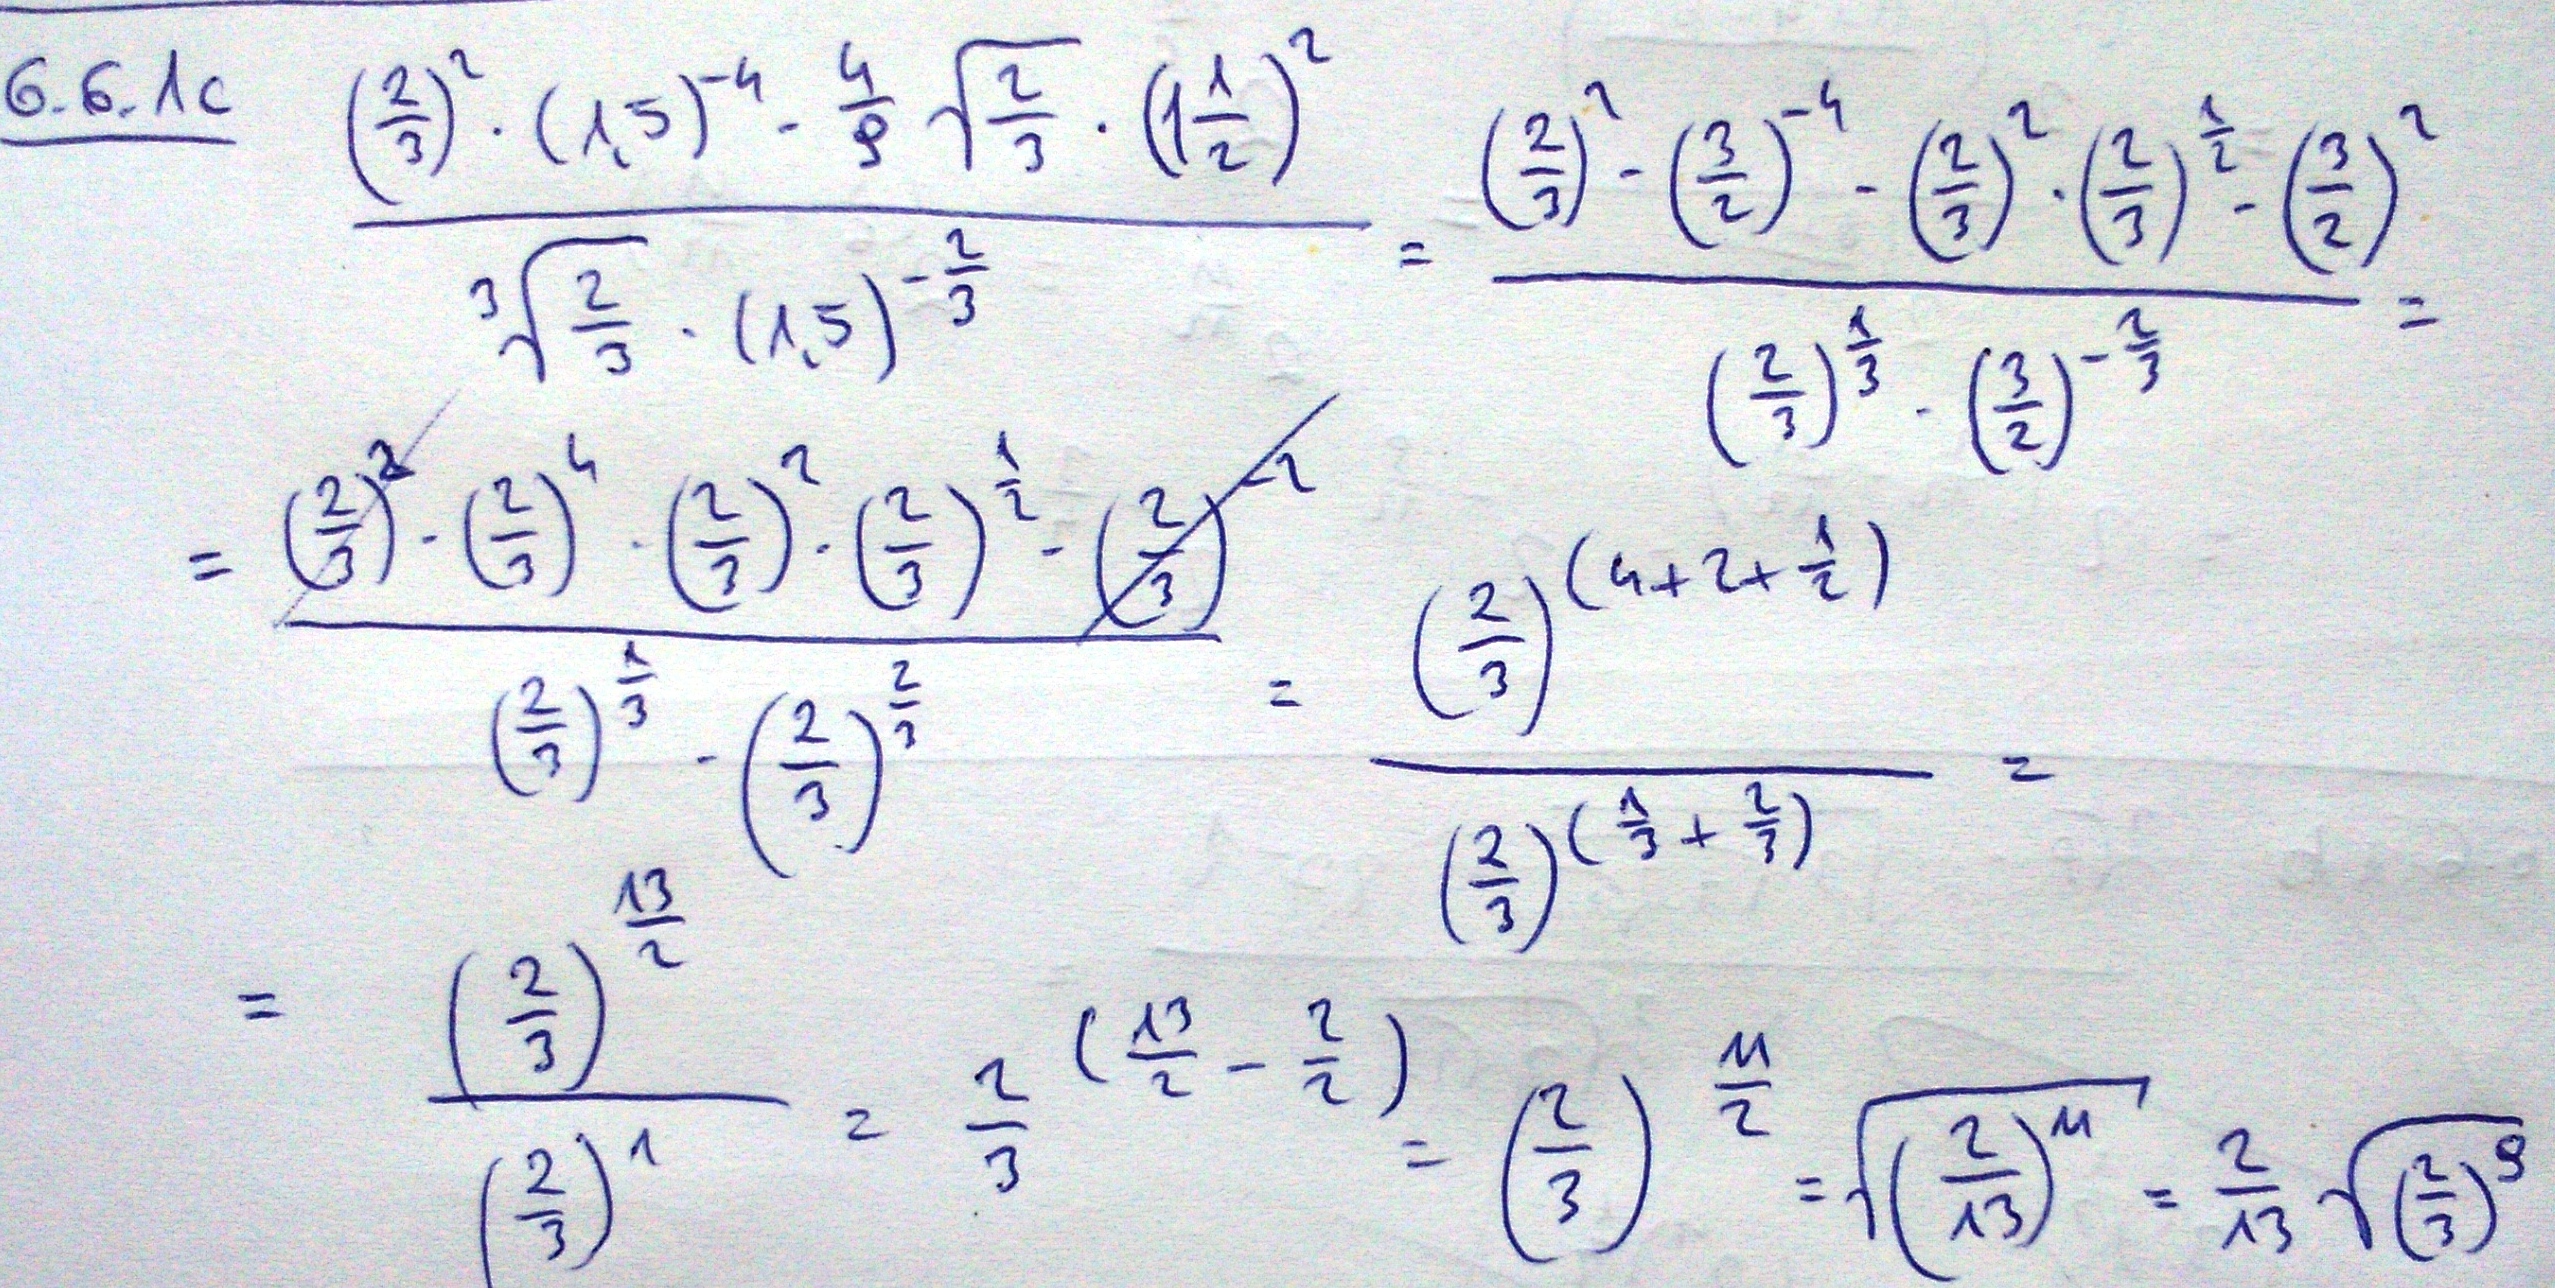 6.6.1c ((2/3)² · (1,5)⁻⁴ · 4/9 √(2/3) · (1 1/2)²) / (³√(2/3) · (1,5)^(-2/3)) = ((2/3)² · (3/2)⁻⁴ · (2/3)² · (2/3)^(1/2) · (3/2)²) / ((2/3)^(1/3) · (3/2)^(-2/3)) =
= ((2/3)² · (2/3)⁴ · (2/3)² · (2/3)^(1/2) · (2/3)⁻²) / ((2/3)^(1/3) · (2/3)^(2/3)) = (2/3)^(4+2+1/2) / (2/3)^(1/3+2/3) =
= (2/3)^(13/2) / (2/3)¹ = 2/3^(13/2 - 2/2) = (2/3)^(11/2) = √((2/13)¹¹) = 2/13 √((2/3)⁹)